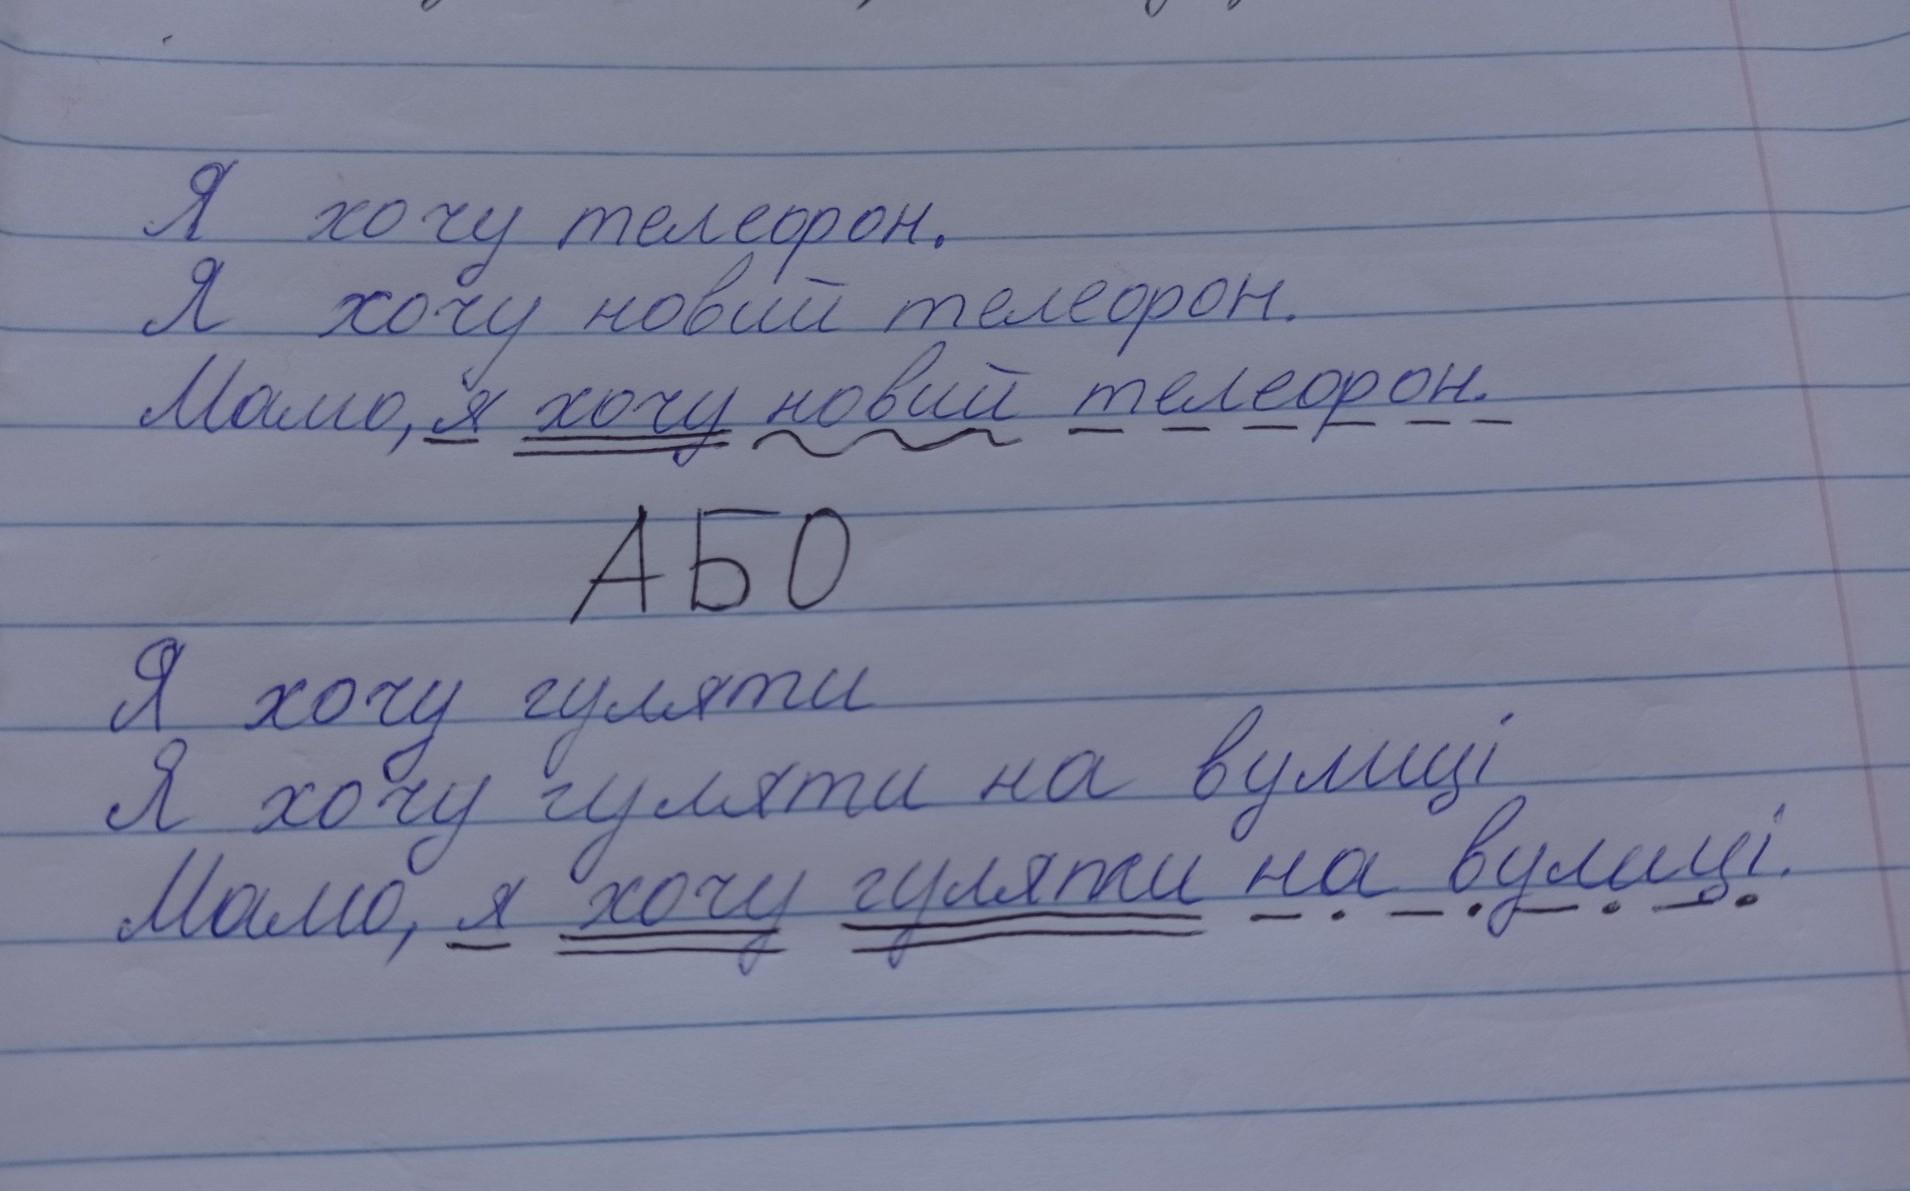 Я хочу телефон.
Я хочу новий телефон.
Мамо, я хочу новий телефон.
АБО
Я хочу гуляти
Я хочу гуляти на вулиці
Мамо, я хочу гуляти на вулиці.